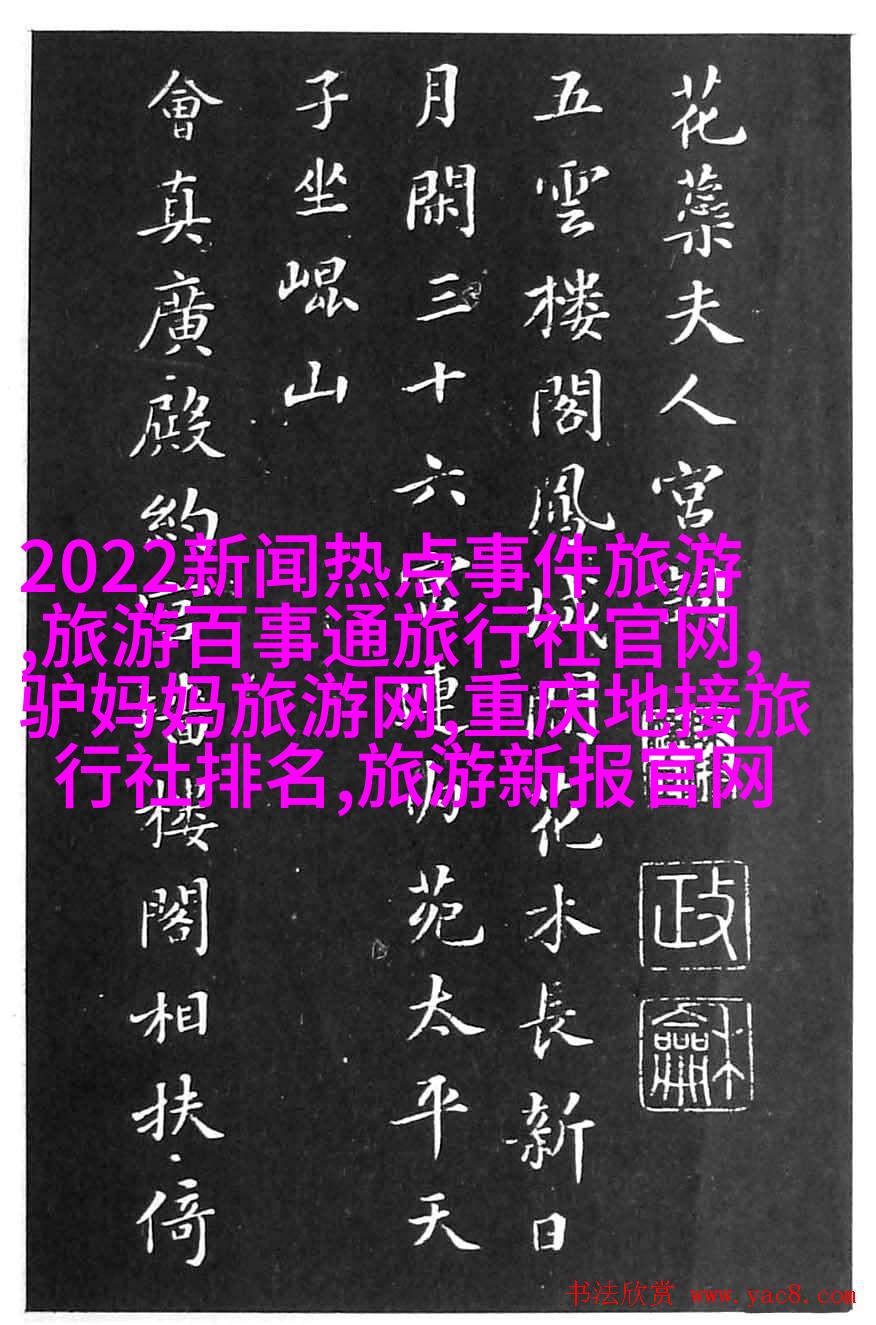 花蘂夫人宮詞
政
龢
五雲楼閣鳳城間花水長新日
月閑三十六宮連內苑太平天
子坐崐山
會真廣殿約宮墻楼閣相扶倚
2022新闻热点事件旅游
,旅游百事通旅行社官网,
驴妈妈旅游网,重庆地接旅
行社排名,旅游新报官网
书法欣赏 www.yac8.com